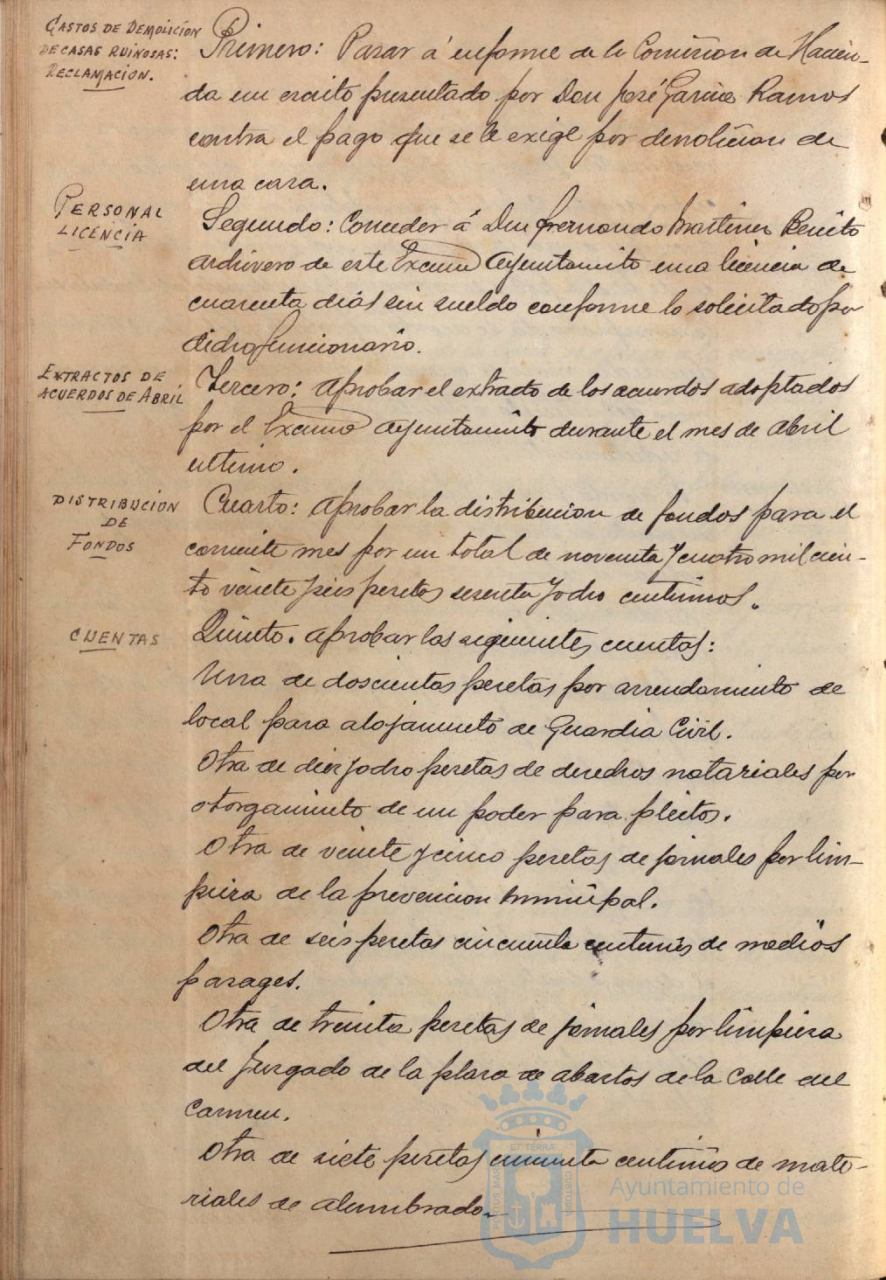 GASTOS DE DEMOLICIÓN
DE CASAS RUINOSAS:
RECLAMACION.
Primero: Pasar á informe de la Comision de Hacien-
da un escrito presentado por Don José Garcia Ramos
contra el pago que se le exige por demolicion de
una casa.
PERSONAL
LICENCIA
Segundo: Conceder á Don Fernando Martinez Benito
archivero de este Excmo Ayuntamiento una licencia de
cuarenta dias sin sueldo conforme lo solicitado por
dicho funcionario.
EXTRACTOS DE
ACUERDOS DE ABRIL
Tercero: Aprobar el extracto de los acuerdos adoptados
por el Excmo Ayuntamiento durante el mes de Abril
ultimo.
DISTRIBUCION
DE
FONDOS
Cuarto: Aprobar la distribucion de fondos para el
corriente mes por un total de noventa y cuatro mil cien-
to veinte y seis pesetas sesenta y ocho centimos.
CUENTAS
Quinto. Aprobar las siguientes cuentas:
Una de doscientas pesetas por arrendamiento de
local para alojamiento de Guardia Civil.
Otra de diez y ocho pesetas de derechos notariales por
otorgamiento de un poder para pleitos.
Otra de veinte y cinco pesetas de jornales por lim-
pieza de la prevencion municipal.
Otra de seis pesetas cincuenta centimos de medios
parages.
Otra de treinta pesetas de jornales por limpieza
del Juzgado de la plaza de abastos de la Calle del
Carmen.
Otra de siete pesetas cincuenta centimos de mate-
riales de alumbrado.
Ayuntamiento de
HUELVA